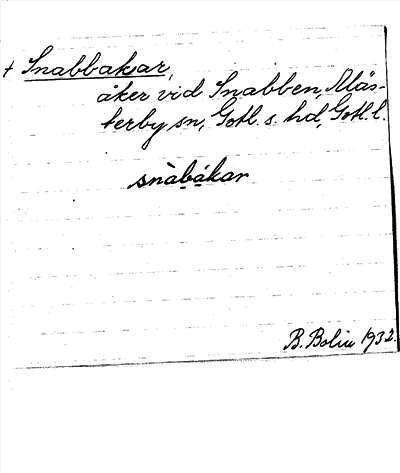 + Snabbakar,
åker vid Snabben, Mäs-
terby sn, Gotl. s. hd, Gotl. l.
snàbákar
B. Bolin 1932.